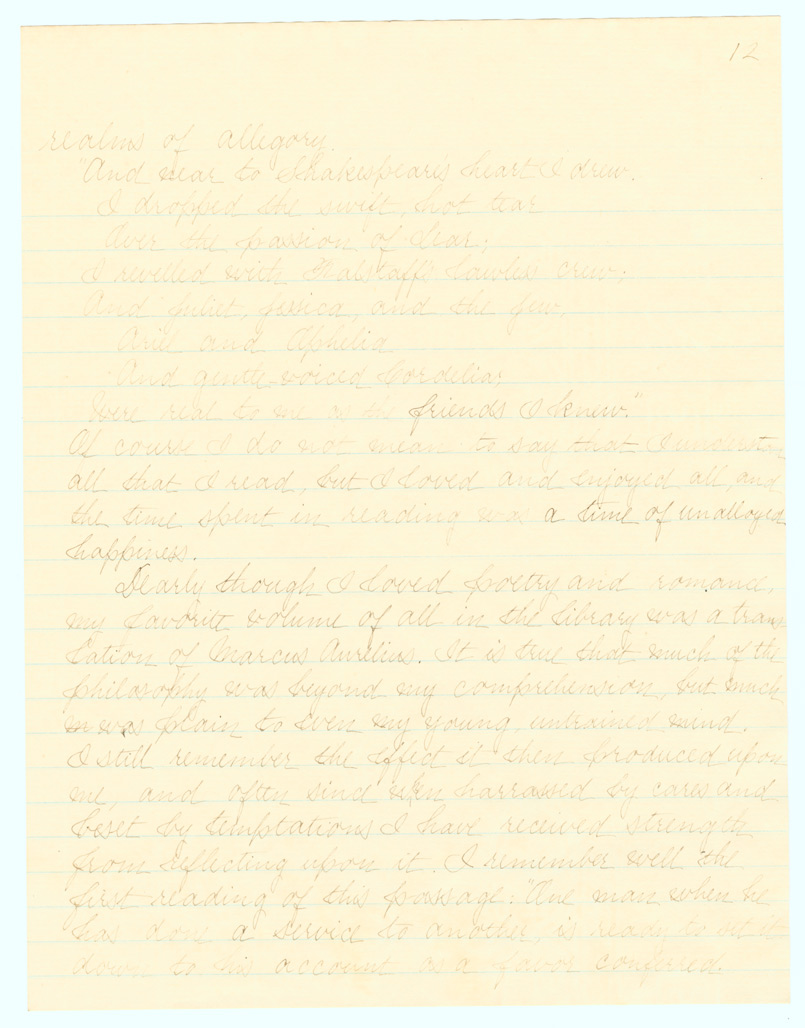 12
realms of allegory.
"And near to Shakespear's heart I drew.
I dropped the swift, hot tear
Over the passion of Lear;
I revelled with Falstaff's lawless crew;
And Juliet, Jessica, and the few,
Ariel and Ophelia
And gentle-voiced Cordelia;
Were real to me as the friends I knew."
Of course I do not mean to say that I understan
all that I read, but I loved and enjoyed all, and
the time spent in reading was a time of unalloyed
happiness.
Dearly though I loved poetry and romance,
my favorite volume of all in the library was a trans
lation of Marcus Aurelius. It is true that much of the
philosophy was beyond my comprehension, but much
was plain to even my young, untrained mind.
I still remember the effect it then produced upon
me, and often since when harrassed by cares and
beset by temptations I have received strength
from reflecting upon it. I remember well the
first reading of this passage: "One man when he
has done a service to another, is ready to set it
down to his account as a favor conferred.